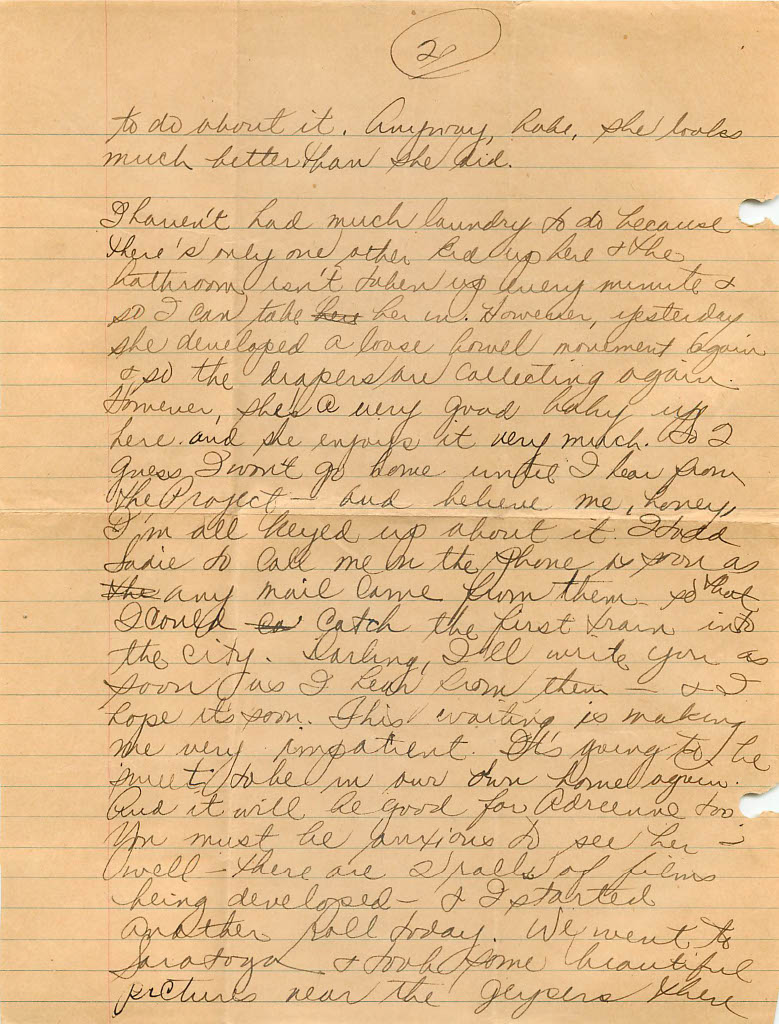 2
to do about it. Anyway, babe, she looks
much better than she did.
I haven't had much laundry to do because
there's only one other kid up here & the
bathroom isn't taken up every minute &
so I can take her her in. However, yesterday
she developed a loose bowel movement again
& so the diapers are collecting again.
However, she's a very good baby up
here and she enjoys it very much. So I
guess I won't go home until I hear from
the Project - and believe me, honey,
I'm all keyed up about it. I told
Sadie to call me on the phone as soon as
the any mail came from them - so that
I could ca catch the first train into
the city. Darling, I'll write you as
soon as I hear from them - & I
hope it's soon. This waiting is making
me very impatient. It's going to be
sweet to be in our own home again.
And it will be good for Adrienne too
You must be anxious to see her -
well - there are 2 rolls of films
being developed - & I started
another roll today. We went to
Saratoga & took some beautiful
pictures near the geysers there